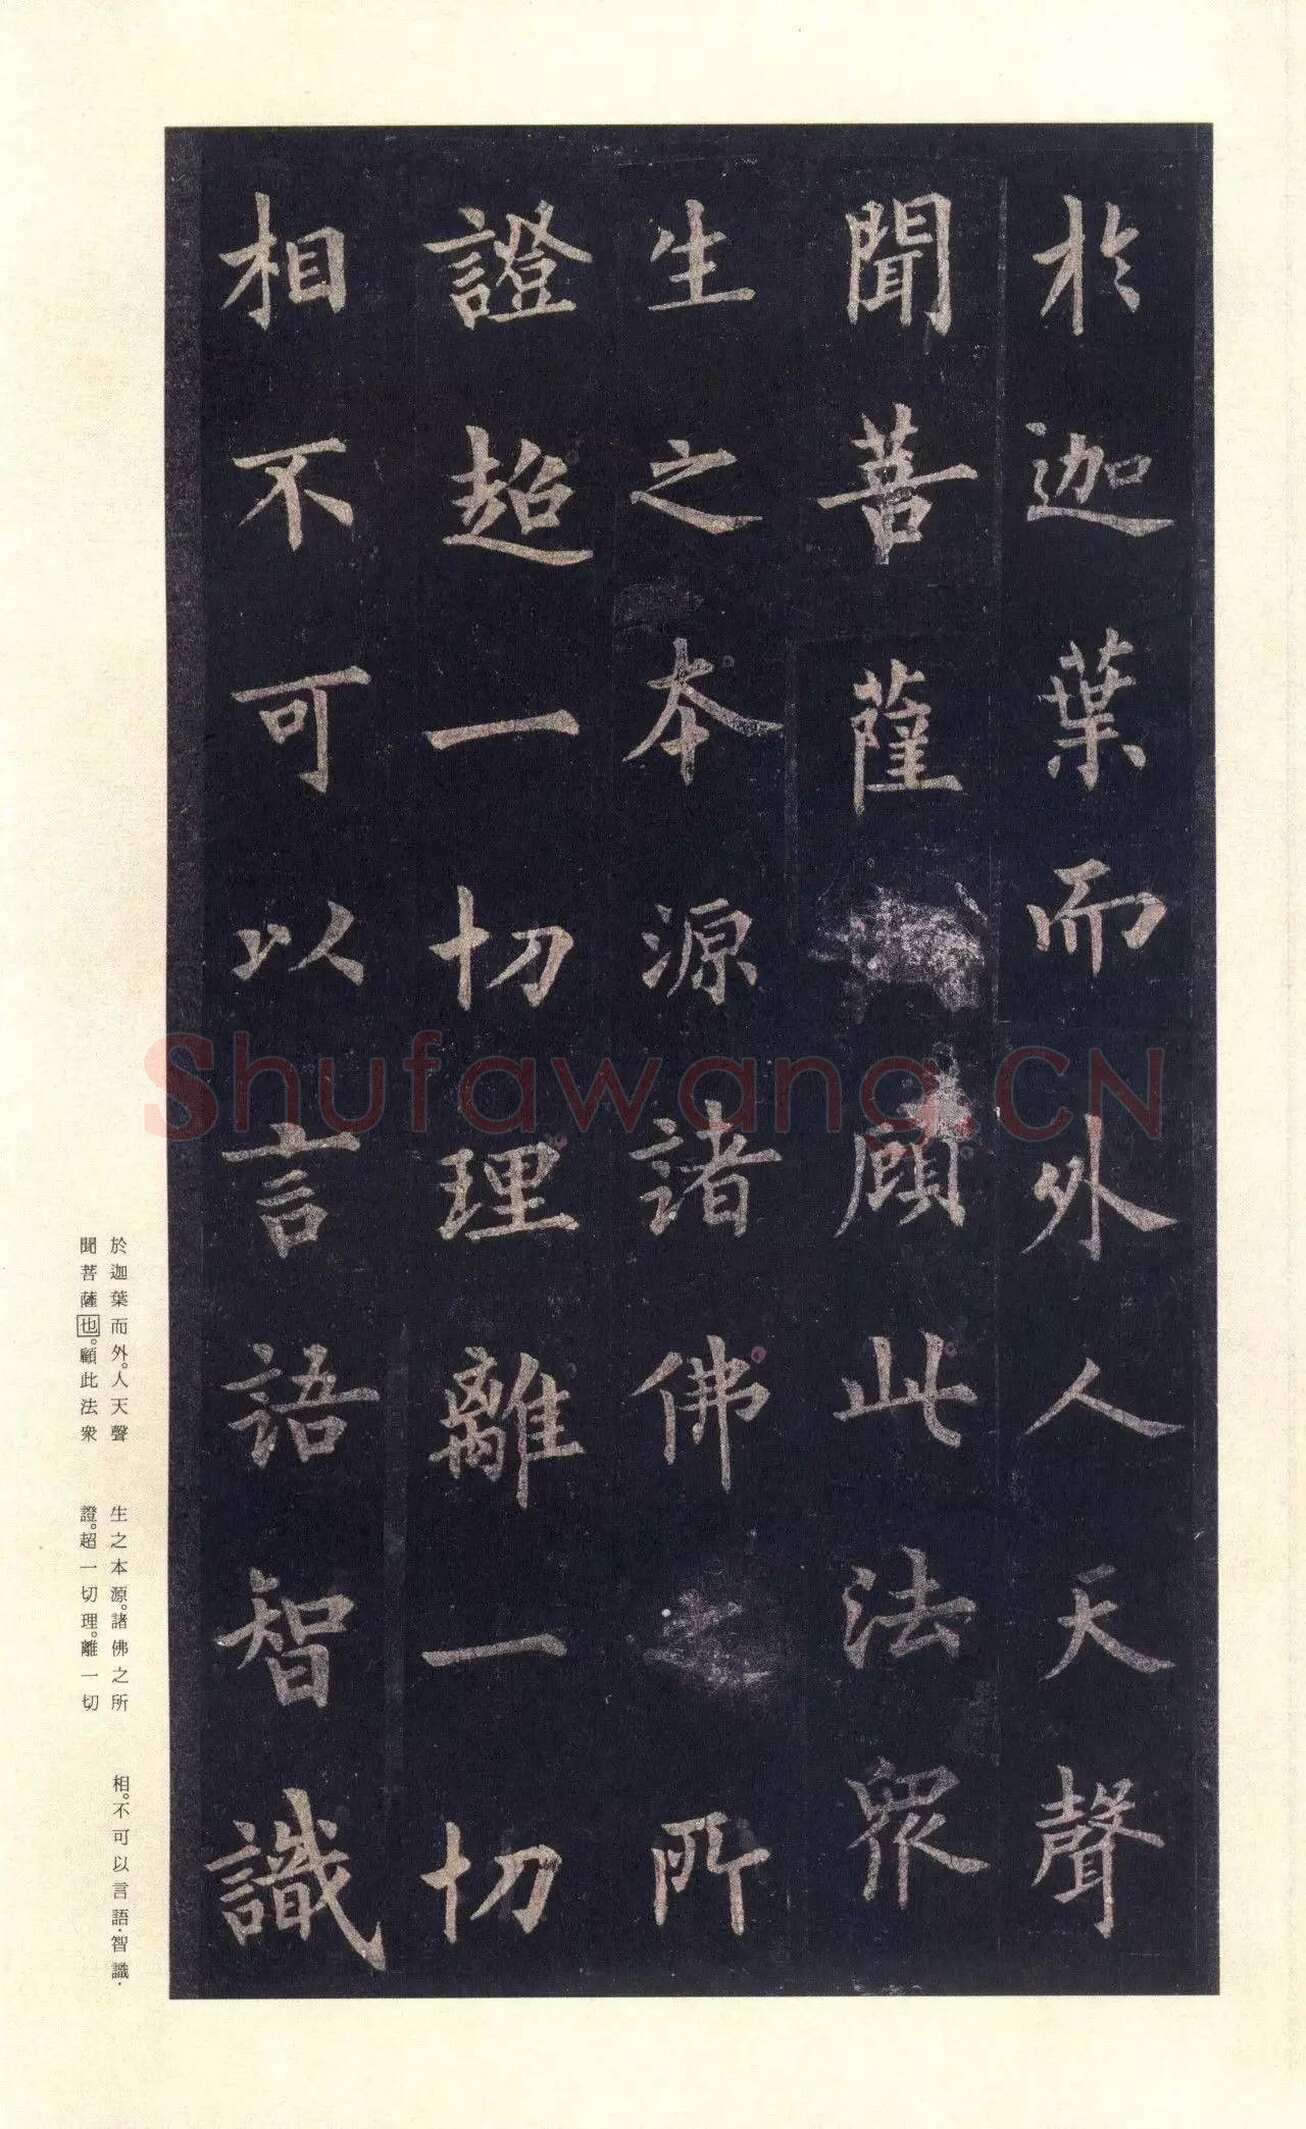 於迦葉而外人天聲
聞菩薩顧此法衆
生之本源諸佛之所
證超一切理離一切
相不可以言語智識
於迦葉而外。人天聲
聞菩薩也。顧此法衆
生之本源。諸佛之所
證。超一切理。離一切
相。不可以言語·智識·
Shufawang.CN